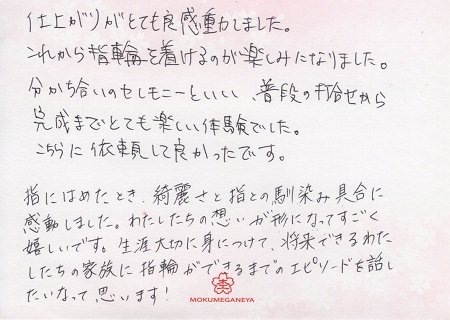 仕上がりがとても良く感動しました。
これから指輪を着けるのが楽しみになりました。
分かち合いのセレモニーといい、普段の打合せから
完成までとても楽しい体験でした。
こちらに依頼して良かったです。
指にはめたとき、綺麗さと指との馴染み具合に
感動しました。わたしたちの想いが形になってすごく
嬉しいです。生涯大切に身につけて、将来できるわた
したちの家族に指輪ができるまでのエピソードを話し
たいなって思います!
MOKUMEGANEYA